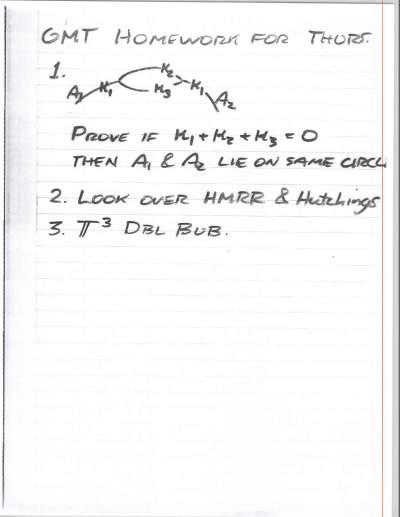 GMT HOMEWORK FOR THURS.
1.
A₁ K₁ K₂ K₃ K₁ A₂
PROVE IF K₁ + K₂ + K₃ = 0
THEN A₁ & A₂ LIE ON SAME CIRCLE
2. LOOK OVER HMRR & Hutchings
3. T³ DBL BUB.